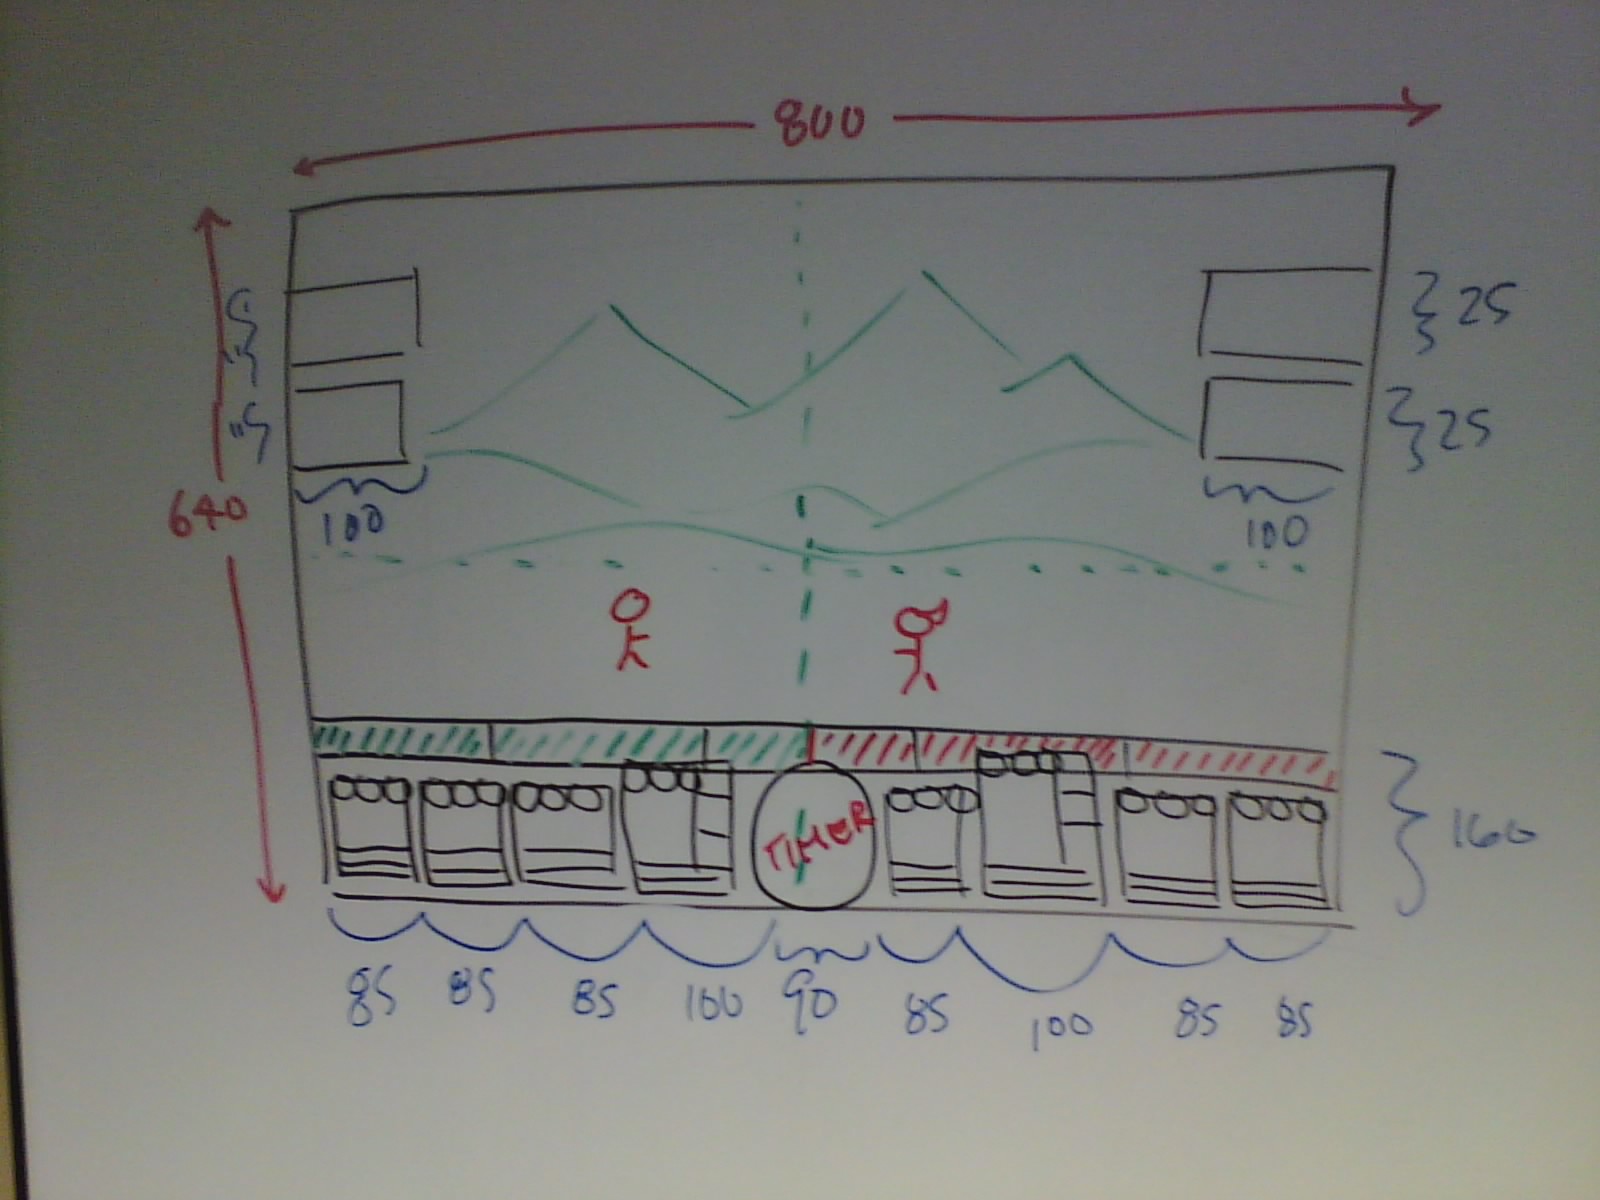 800
25
25
640
100
100
TIMER
160
85 85 85 100 90 85 100 85 85